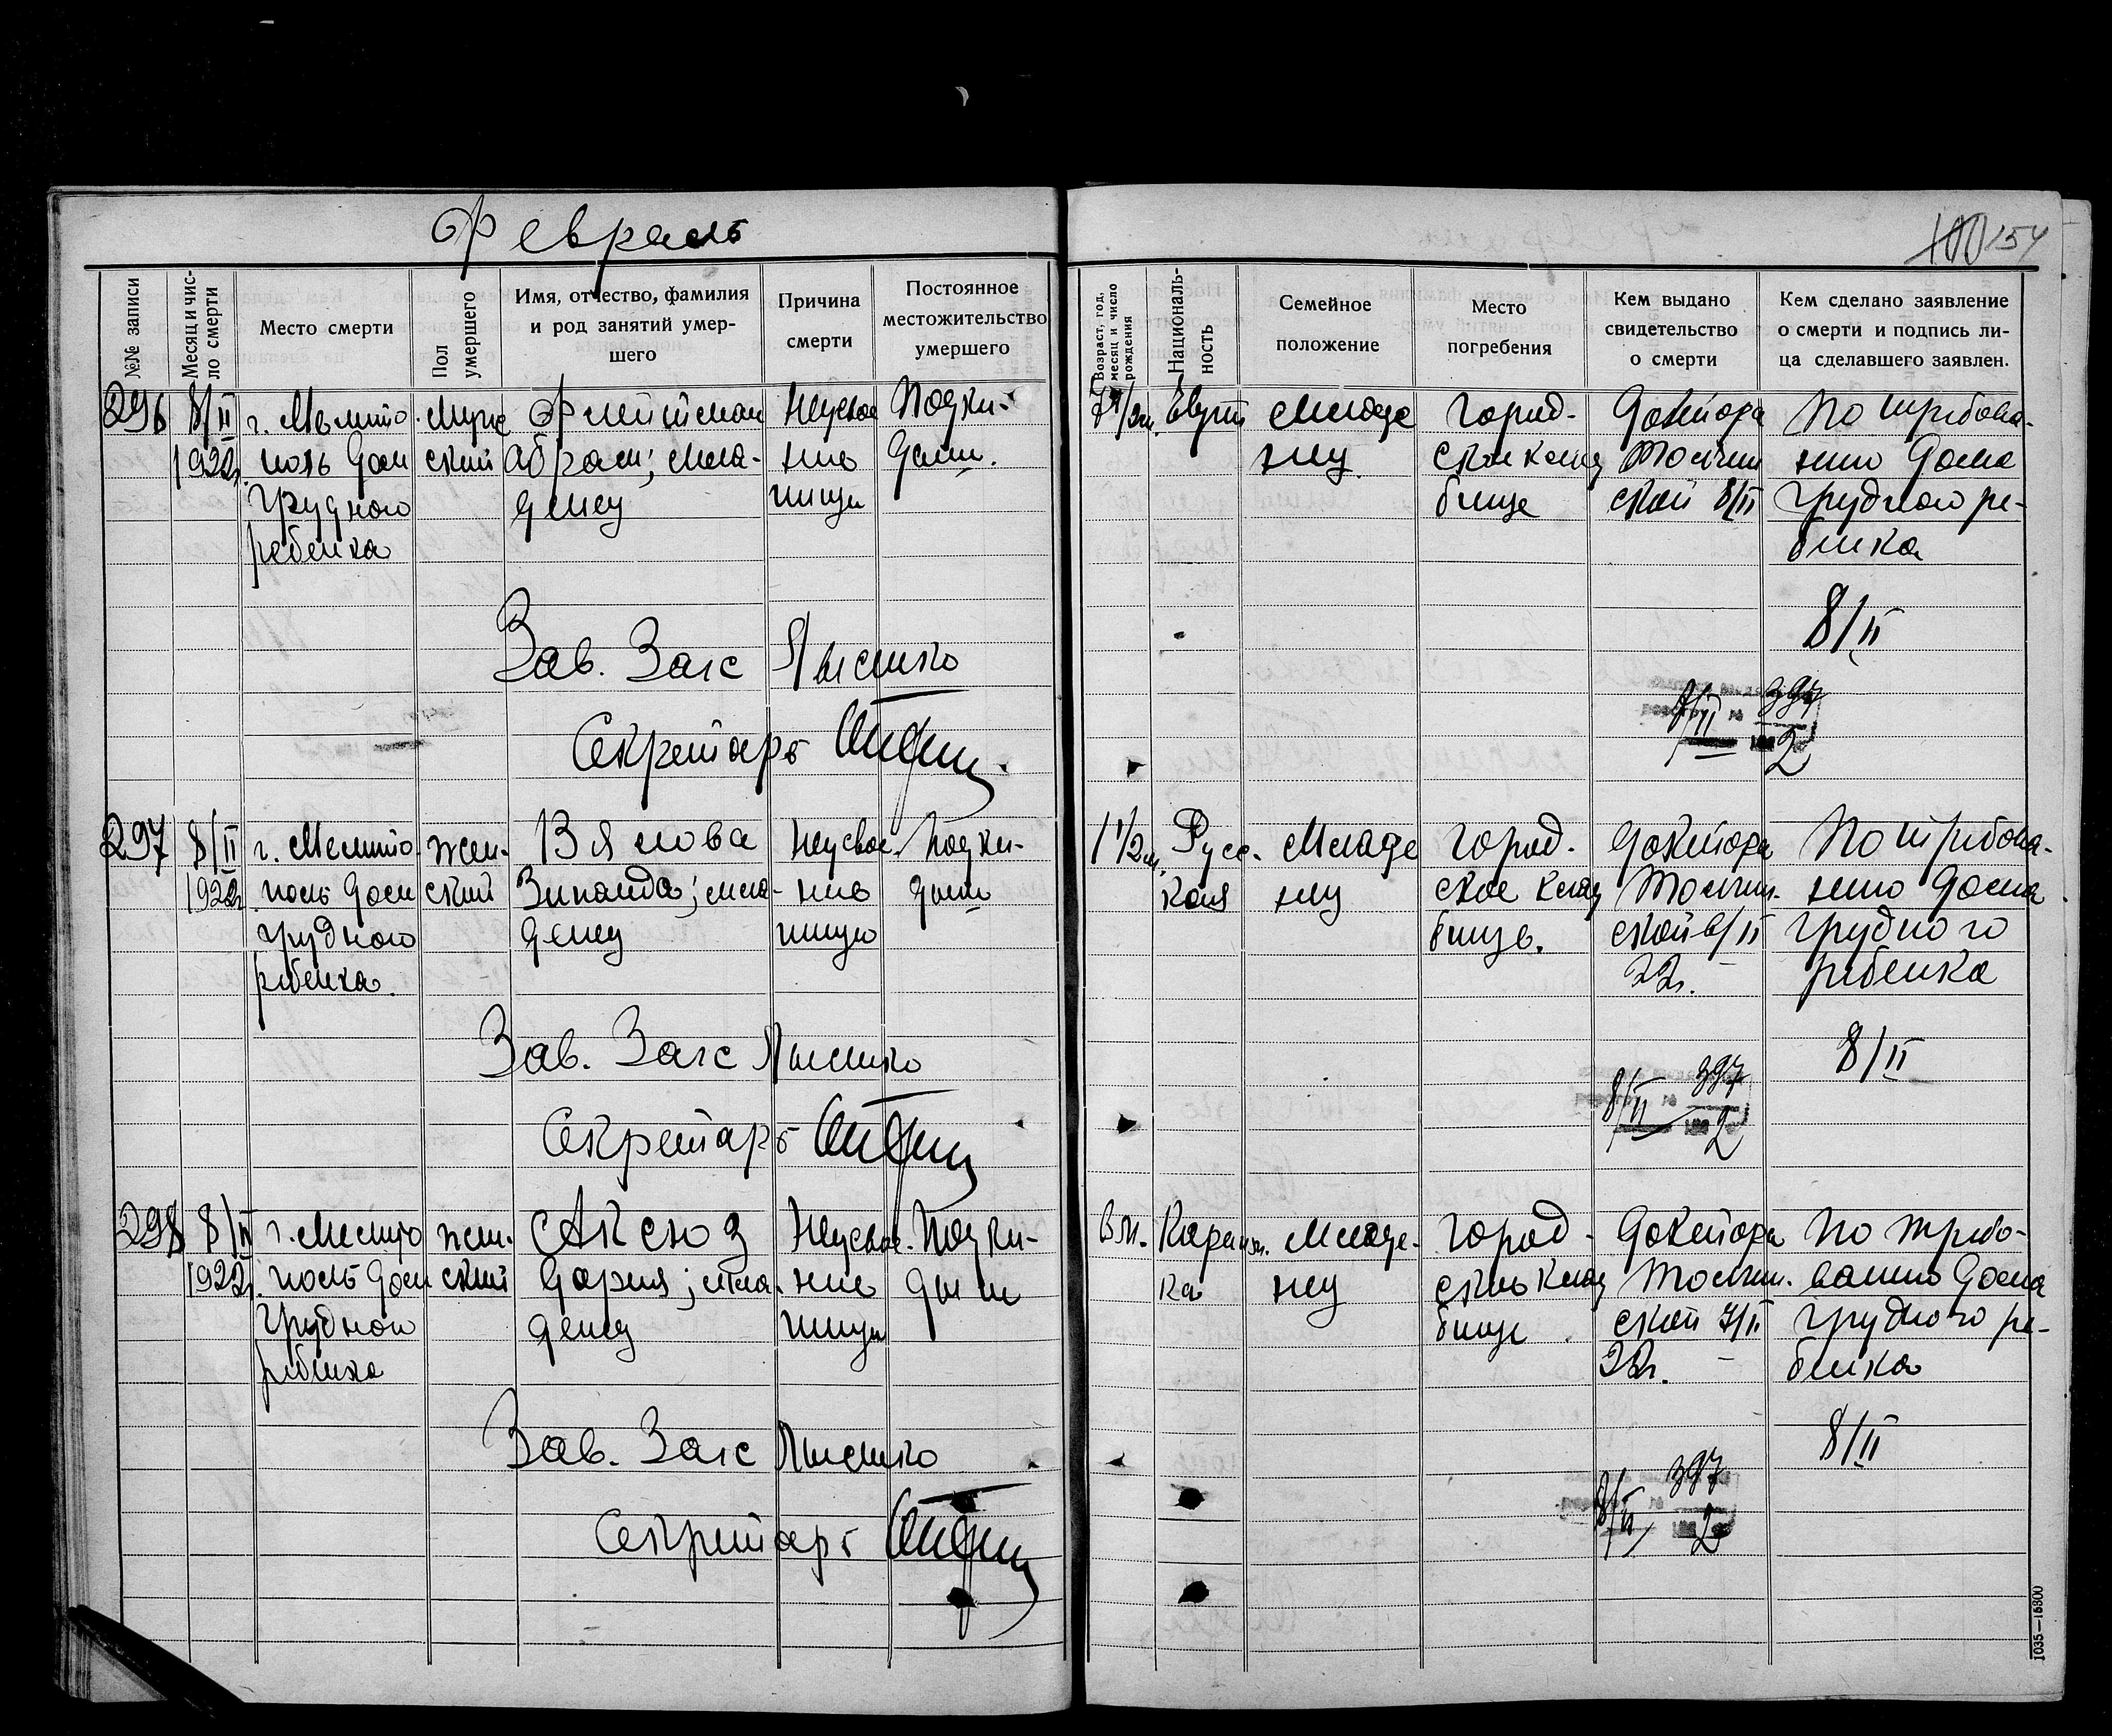 Февраль
154
№№ записи
Месяц и чис-
ло смерти
Место смерти
Пол
умершего
Имя, отчество, фамилия
и род занятий умер-
шего
Причина
смерти
Постоянное
местожительство
умершего
Возраст, год,
месяц и число
рождения
Националь-
ность
Семейное
положение
Место
погребения
Кем выдано
свидетельство
о смерти
Кем сделано заявление
о смерти и подпись ли-
ца сделавшего заявлен.
296
8/II
1922г.
г. Мелито-
поль Дом
Грудного
ребенка
Муже
ский
Флейшман
Абрам; мла-
денец
Неусвое
ние
пищи
Подки-
дыш.
Младе
нец
город-
ское клад
бище
Доктора
ской 8/II
По требова-
нию Дома
Грудного ре-
бенка
8/II
Зав. Загс
Секретарь
8/II 397
2
297
8/II
1922г.
г. Мелито-
поль Дом
грудного
ребенка.
жен-
ский
Зинаида; мла-
денец
Неусвое-
ние
пищи
Подки-
дыш
1 1/2 м.
Русс-
кая
Младе
нец
город-
ское клад
бище.
Доктора
ской 8/II
22г.
По требова-
нию Дома
грудного
ребенка
8/II
Зав. Загс
Секретарь
8/II 397
2
298
8/II
1922г.
г. Мелито
поль Дом
Грудного
ребенка
жен-
ский
Аксюз
Дария; мла-
денец
Неусвое-
ние
пищи
Подки-
дыш
Караим-
ка
Младе-
нец
город-
ское клад
бище
Доктора
ской 7/II
22г.
По требо-
ванию Дома
грудного ре-
бенка
8/II
Зав. Загс
Секретарь
8/II 397
2
1035—15300